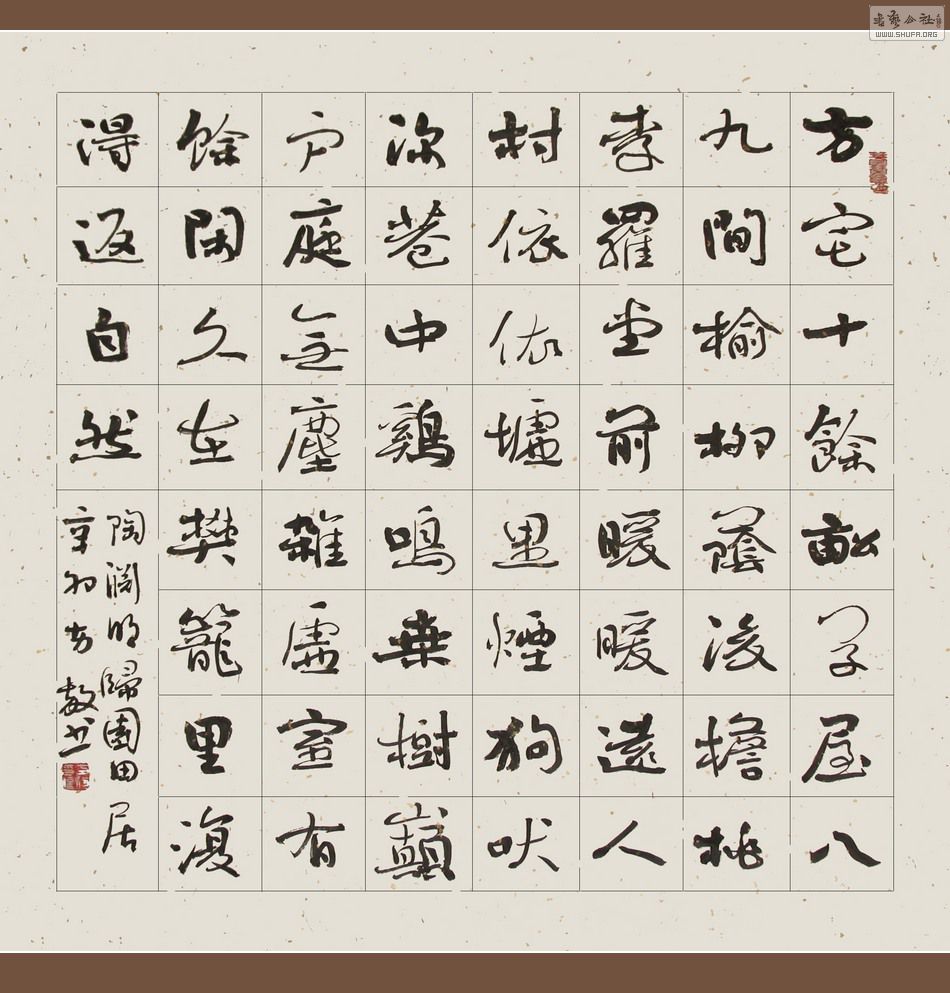 方宅十餘畝草屋八
九間榆柳蔭後檐桃
李羅堂前暖暖遠人
村依依墟里煙狗吠
深巷中鷄鳴桑樹巔
户庭無塵雜虛室有
餘閑久在樊籠里復
得返自然
陶淵明歸園田居
書藝公社
WWW.SHUFA.ORG